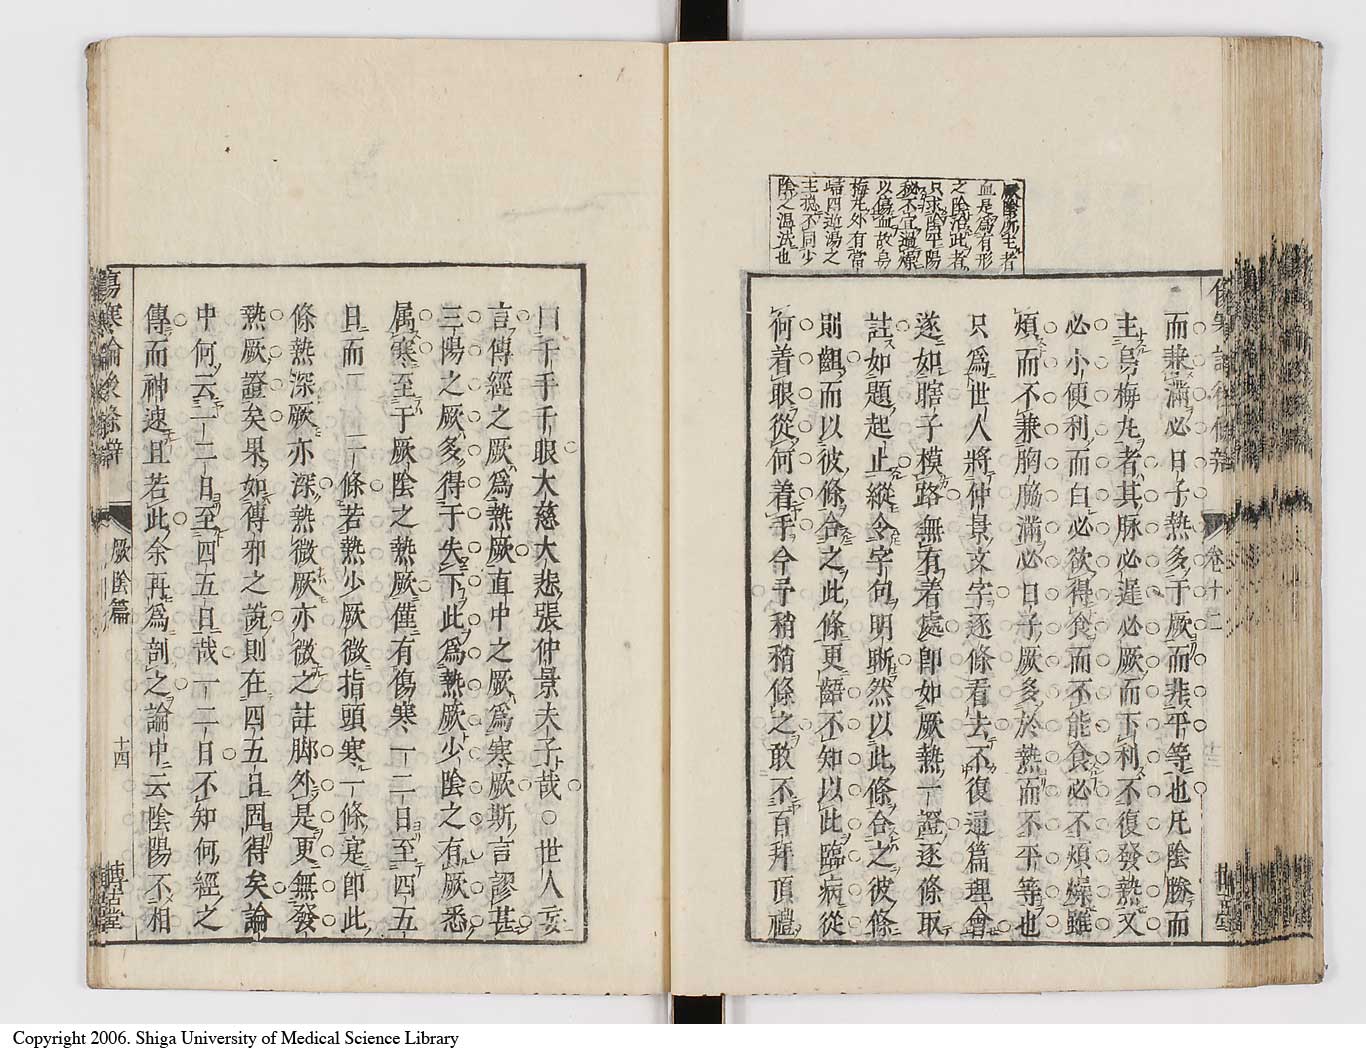 厥陰所主者
血是爲有形
之陰治此者
只求陰平陽
秘不宜過燥
以傷血故烏
梅丸外有當
歸四逆湯之
主稍不同少
陰之温法也
而兼滿必日子熱多于厥而非平等也凡陰勝而
主烏梅丸者其脉必遲必厥而下利不復發熱又
必小便利而白必欲得食而不能食必不煩燥雖
煩而不兼胸脇滿必日子厥多於熱而不平等也
只爲世人將仲景文字逐條看去不復通篇理會
遂如瞎子模路無有着處卽如厥熱一證逐條取
註如題起止縱令字句明晰然以此條合之彼條
則齟而以彼條合之此條更齬不知以此臨病從
何着眼從何着手今予稍稍條之敢不百拜頂禮
卷十二
曰千手千眼大慈大悲張仲景夫子哉○世人妄
言傳經之厥爲熱厥直中之厥爲寒厥斯言謬甚
三陽之厥多得于失下此爲熱厥少陰之有厥悉
属寒至于厥陰之熱厥僅有傷寒一二日至四五
日而一條若熱少厥微指頭寒一條寔卽此
條熱深厥亦深熱微厥亦微之註脚外是更無發
熱厥證矣果如傳邪之說則在四五日固得矣論
中何云一二日至四五日哉一二日不知何經之
傳而神速且若此余再爲剖之論中云陰陽不相
傷寒論後條辨
厥陰篇
十四
博古堂
Copyright 2006. Shiga University of Medical Science Library